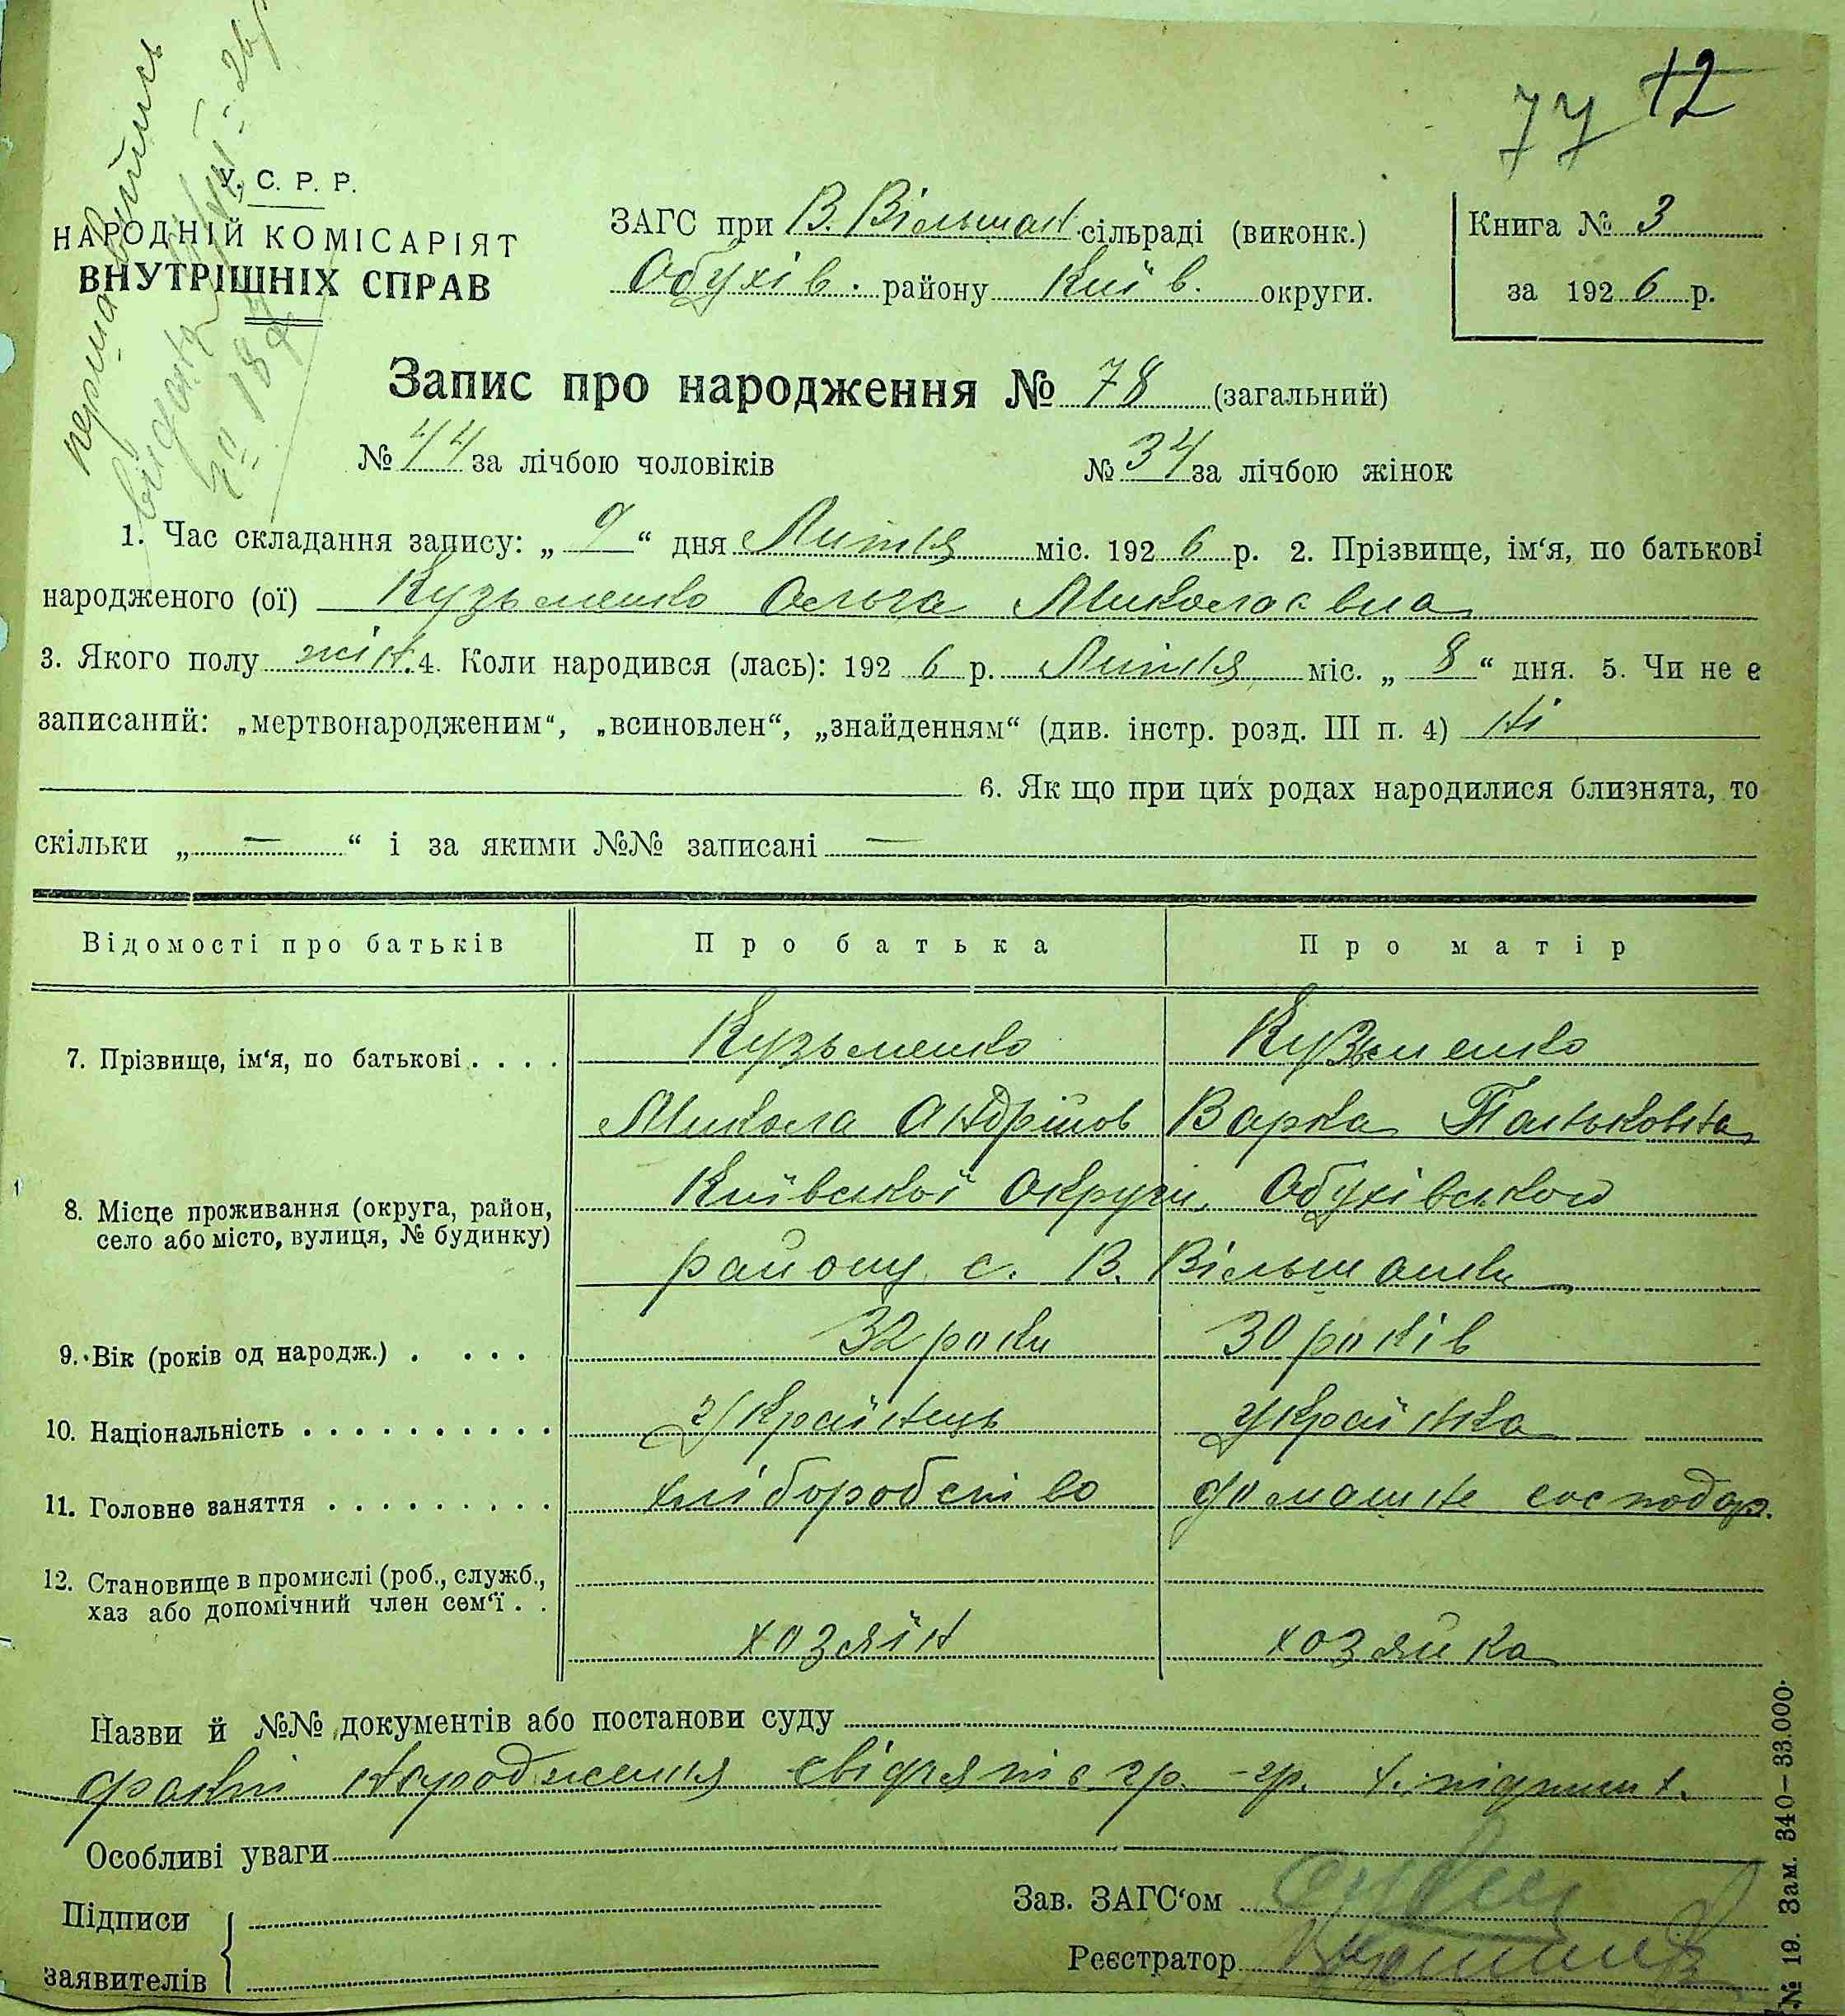 77 12
У. С. Р. Р.
НАРОДНІЙ КОМІСАРІЯТ
ВНУТРІШНІХ СПРАВ
перша випись
видана
ЗАГС при В. Вільшан. сільраді (виконк.)
Обухів. району Київ. округи.
Книга № 3
за 1926 р.
Запис про народження № 78 (загальний)
№ 44 за лічбою чоловіків № 34 за лічбою жінок
1. Час складання запису: „ 9 “ дня Липня міс. 1926 р. 2. Прізвище, ім‘я, по батькові
народженого (ої) Кузьменко Ольга Миколаєвна
3. Якого полу жін. 4. Коли народився (лась): 1926 р. Липня міс. „ 8 “ дня. 5. Чи не є
записаний: „мертвонародженим“, „всиновлен“, „знайденням“ (див. інстр. розд. III п. 4) Ні
6. Як що при цих родах народилися близнята, то
скільки „ — “ і за якими №№ записані —
Відомості про батьків Про батька Про матір
7. Прізвище, ім‘я, по батькові . . . . Кузьменко Кузьменко
Микола Андріїов Варка Паньковна
8. Місце проживання (округа, район, Київської Округи, Обухівського
село або місто, вулиця, № будинку) району с. В. Вільшанки
9. Вік (років од народж.) . . . . 32 роки 30 років
10. Національність . . . . . . . . . . Українець Українка
11. Головне заняття . . . . . . . . . хліборобство домашнє господар.
12. Становище в промислі (роб., служб.,
хаз або допомічний член сем‘ї . . хозяїн хозяйка
Назви й №№ документів або постанови суду
факт народження свідчять гр. - гр. х. підпит.
Особливі уваги
Підписи
заявителів
Зав. ЗАГС‘ом
Реєстратор
№ 19. Зам. 340–33.000.